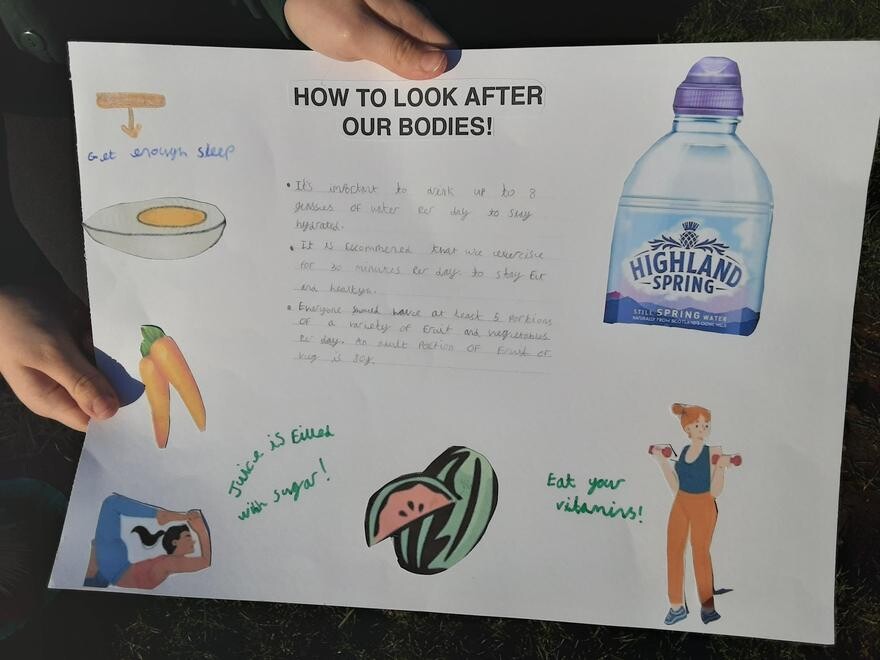 HOW TO LOOK AFTER
OUR BODIES!
Get enough sleep
• It's important to drink up to 8
glasses of water per day to stay
hydrated.
• It is recommened that we exercise
for 30 minutes per day to stay fit
and healthy.
• Everyone should have at least 5 portions
of a variety of fruit and vegetables
per day. An adult portion of fruit or
veg is 80g.
HIGHLAND
SPRING
STILL SPRING WATER
NATURALLY FROM SCOTLAND'S OCHIL HILLS
Juice is filled
with sugar!
Eat your
vitamins!